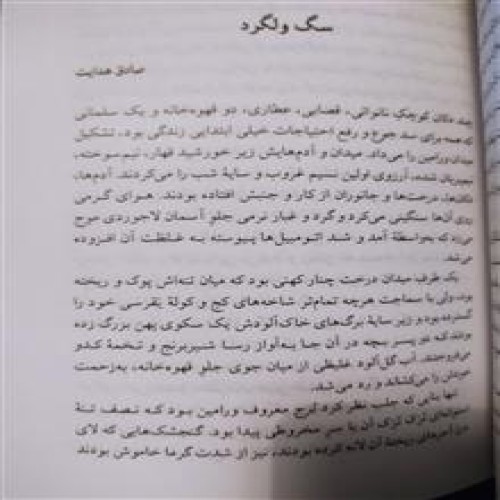 سگ ولگرد
صادق هدایت
چند دکان کوچک نانوائی، قصابی، عطاری، دو قهوه‌خانه و یک سلمانی
که همه برای سد جوع و رفع احتیاجات خیلی ابتدایی زندگی بود، تشکیل
میدان ورامین را می‌داد. میدان و آدم‌هایش زیر خورشید قهار، نیم‌سوخته،
نیم‌بریان شده، آرزوی اولین نسیم غروب و سایهٔ شب را می‌کردند. آدم‌ها،
دکان‌ها، درخت‌ها و جانوران از کار و جنبش افتاده بودند. هوای گرمی
روی آن‌ها سنگینی می‌کرد و گرد و غبار نرمی جلو آسمان لاجوردی موج
می‌زد که به‌واسطهٔ آمد و شد اتومبیل‌ها پیوسته به غلظت آن افزوده
می‌شد.
یک طرف میدان درخت چنار کهنی بود که میان تنه‌اش پوک و ریخته
بود، ولی با سماجت هرچه تمام‌تر شاخه‌های کج و کولهٔ نقرسی خود را
گسترده بود و زیر سایهٔ برگ‌های خاک‌آلودش یک سکوی پهن بزرگ زده
بودند که دو پسر بچه در آن جا به‌آواز رسا شیربرنج و تخمهٔ کدو
می‌فروختند. آب گل‌آلود غلیظی از میان جوی جلو قهوه‌خانه، به‌زحمت
خودش را می‌کشاند و رد می‌شد.
تنها بنایی که جلب نظر می‌کرد برج معروف ورامین بود که نصف تنهٔ
استوانه‌ای ترک ترک آن با سر مخروطی پیدا بود. گنجشک‌هایی که لای
درز آجرهای ریختهٔ آن لانه کرده بودند، نیز از شدت گرما خاموش بودند